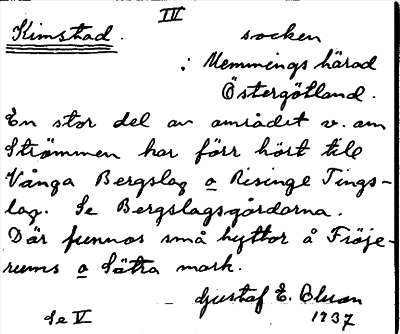 IV
Kimstad. socken
i Memmings härad
Östergötland.
En stor del av området v. om
Strömmen har förr hört till
Vånga Bergslag o Risinge Tings-
lag. Se Bergslagsgårdarna.
Där funnos små hyttor å Fröje-
rums o Sätra mark.
Gustaf E.
Se V 1937